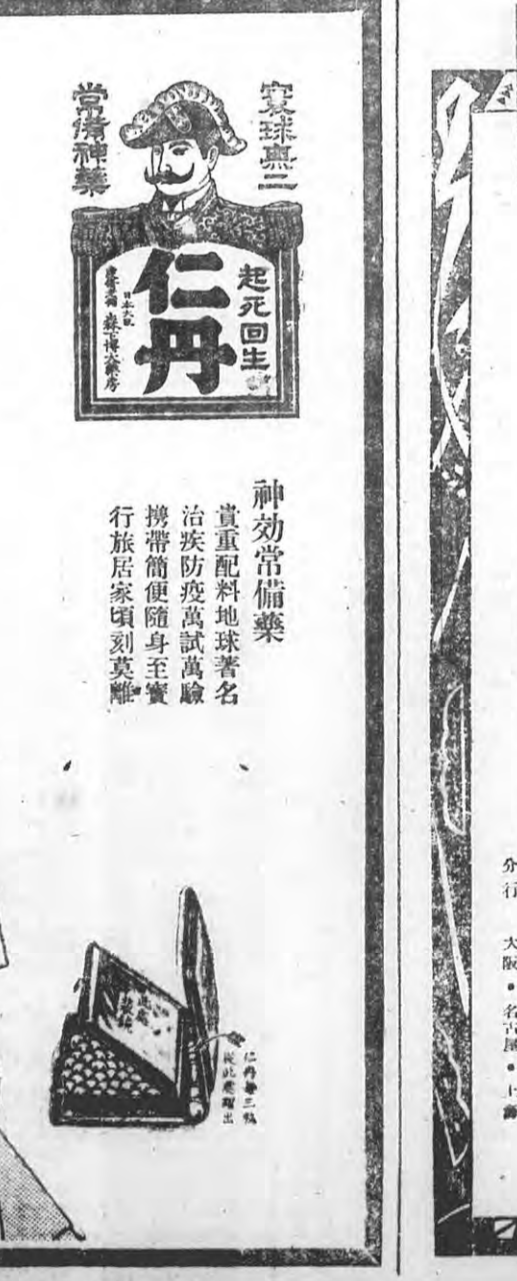 寰球無二
常備神藥
起死回生
仁丹
日本大阪
森下博大藥房
神効常備藥
貴重配料地球著名
治疾防疫萬試萬驗
携帶簡便隨身至寶
行旅居家頃刻莫離
仁丹每三瓶
從此處躍出
分行
大阪・名古屋・上海